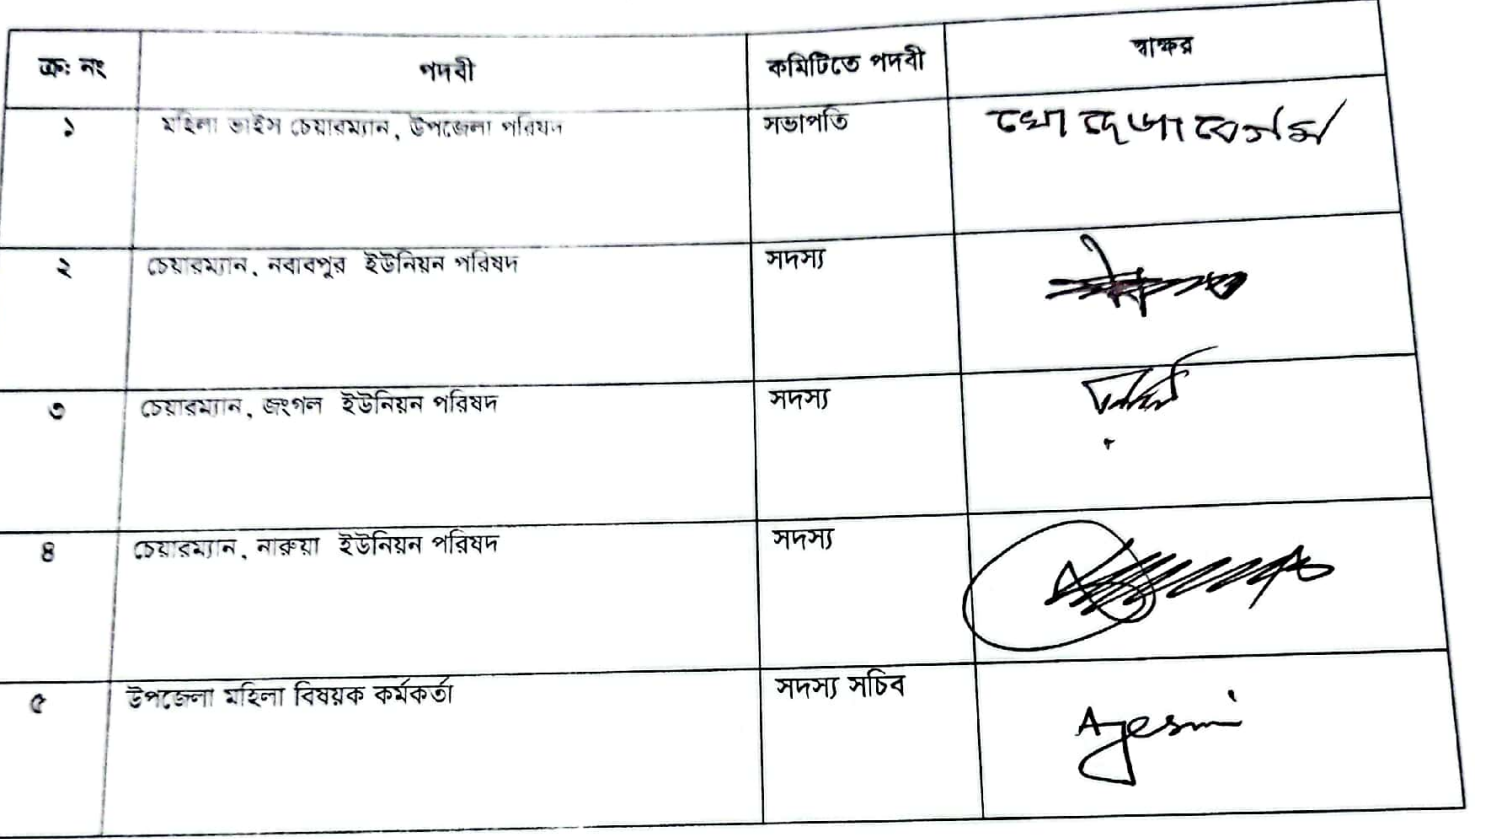 ক্রঃ নং পদবী কমিটিতে পদবী স্বাক্ষর
১ মহিলা ভাইস চেয়ারম্যান, উপজেলা পরিষদ সভাপতি খোদেজা বেগম
২ চেয়ারম্যান, নবাবপুর ইউনিয়ন পরিষদ সদস্য
৩ চেয়ারম্যান, জংগল ইউনিয়ন পরিষদ সদস্য
৪ চেয়ারম্যান, নারুয়া ইউনিয়ন পরিষদ সদস্য
৫ উপজেলা মহিলা বিষয়ক কর্মকর্তা সদস্য সচিব